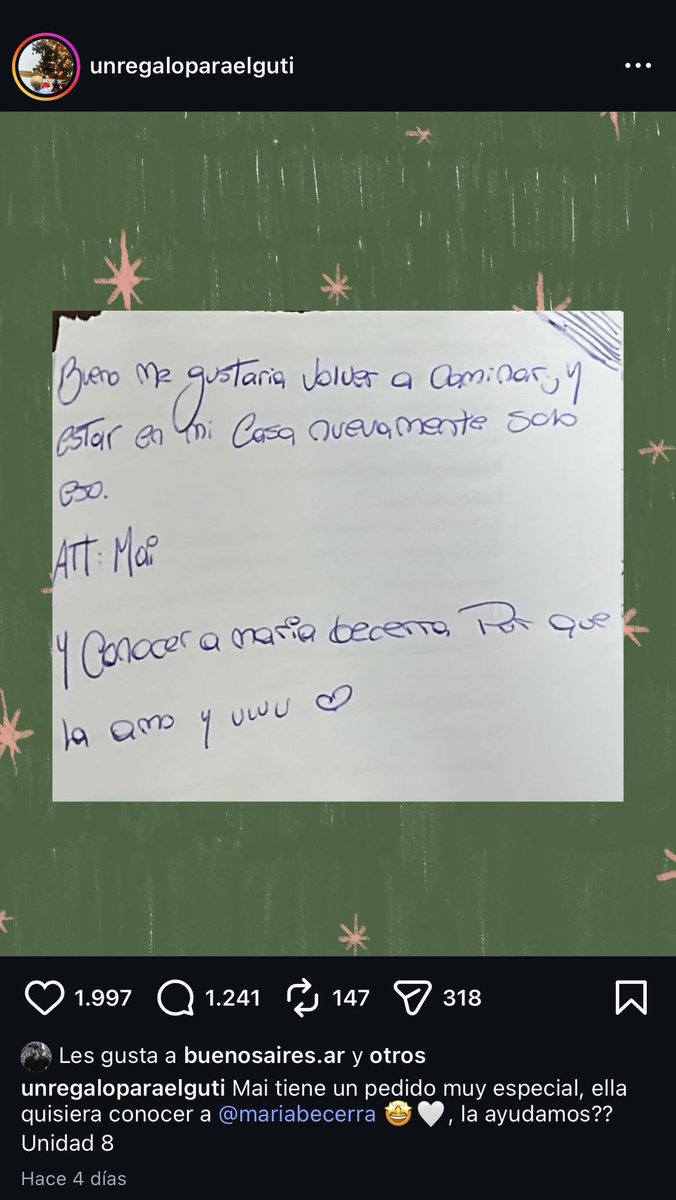 unregaloparaelguti
Bueno me gustaria volver a caminar, y
estar en mi casa nuevamente solo
eso.
ATT: Mai
Y conocer a maria becerra Por que
la amo y uwu ♡
1.997 1.241 147 318
Les gusta a buenosaires.ar y otros
unregaloparaelguti Mai tiene un pedido muy especial, ella
quisiera conocer a @mariabecerra 🤩🤍, la ayudamos??
Unidad 8
Hace 4 días